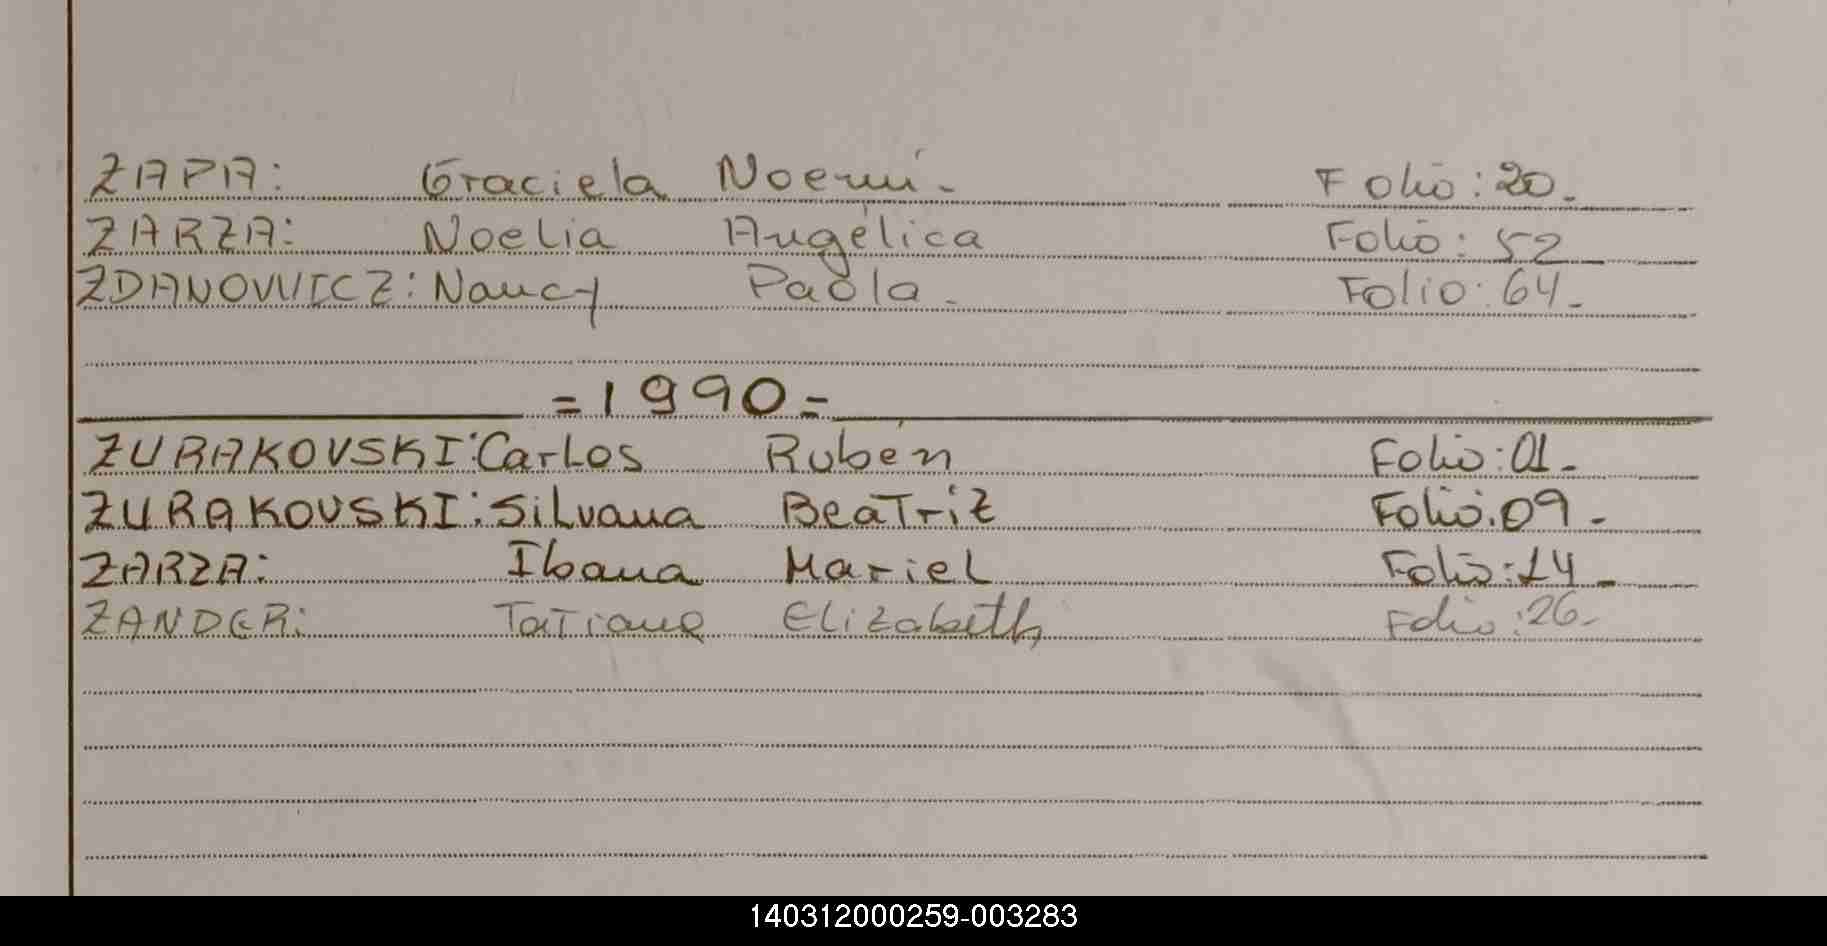 ZAPA: Graciela Noemí. Folio: 20.
ZARZA: Noelia Angélica Folio: 52
ZDANOWICZ: Nancy Paola. Folio: 64.
= 1990 =
ZURAKOVSKI: Carlos Rubén Folio: 01.
ZURAKOVSKI: Silvana Beatriz Folio: 09.
ZARZA: Ibana Mariel Folio: 14.
ZANDER: Tatiana Elizabeth Folio: 26.
140312000259-003283